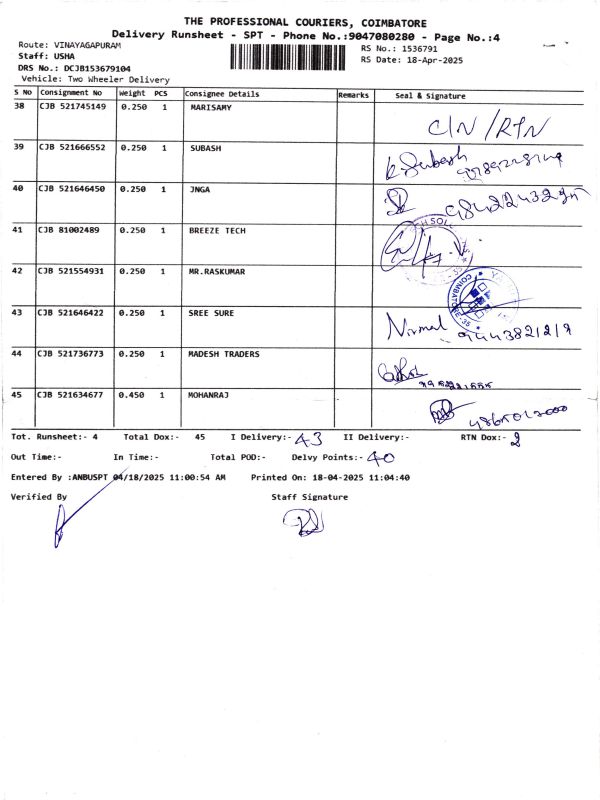 THE PROFESSIONAL COURIERS, COIMBATORE
Delivery Runsheet - SPT - Phone No.:9047080280 - Page No.:4
Route: VINAYAGAPURAM
RS No.: 1536791
Staff: USHA
RS Date: 18-Apr-2025
DRS No.: DCJB153679104
Vehicle: Two Wheeler Delivery
S NO Consignment No Weight PCS Consignee Details Remarks Seal & Signature
38 CJB 521745149 0.250 1 MARISAMY C/N / RTN
39 CJB 521666552 0.250 1 SUBASH K. Subash
40 CJB 521646450 0.250 1 JNGA
41 CJB 81002489 0.250 1 BREEZE TECH
42 CJB 521554931 0.250 1 MR.RASKUMAR
43 CJB 521646422 0.250 1 SREE SURE Nirmal
44 CJB 521736773 0.250 1 MADESH TRADERS
45 CJB 521634677 0.450 1 MOHANRAJ
Tot. Runsheet:- 4 Total Dox:- 45 I Delivery:- 43 II Delivery:- RTN Dox:- 2
Out Time:- In Time:- Total POD:- Delvy Points:- 40
Entered By :ANBUSPT 04/18/2025 11:00:54 AM Printed On: 18-04-2025 11:04:40
Verified By Staff Signature